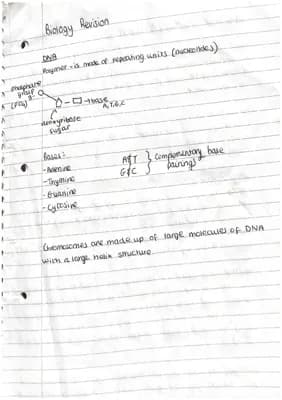 Biology Revision
DNA
Polymer - is made of repeating units (nucleotides)
phosphate
group
(PO4) 3-
→ base
A, T, G, C
deoxyribose
sugar
Bases:
- Adenine
- Thymine
- Guanine
- Cytosine
A & T
G & C
} complementary base
pairing
Chromosomes are made up of large molecules of DNA
with a large helix structure.